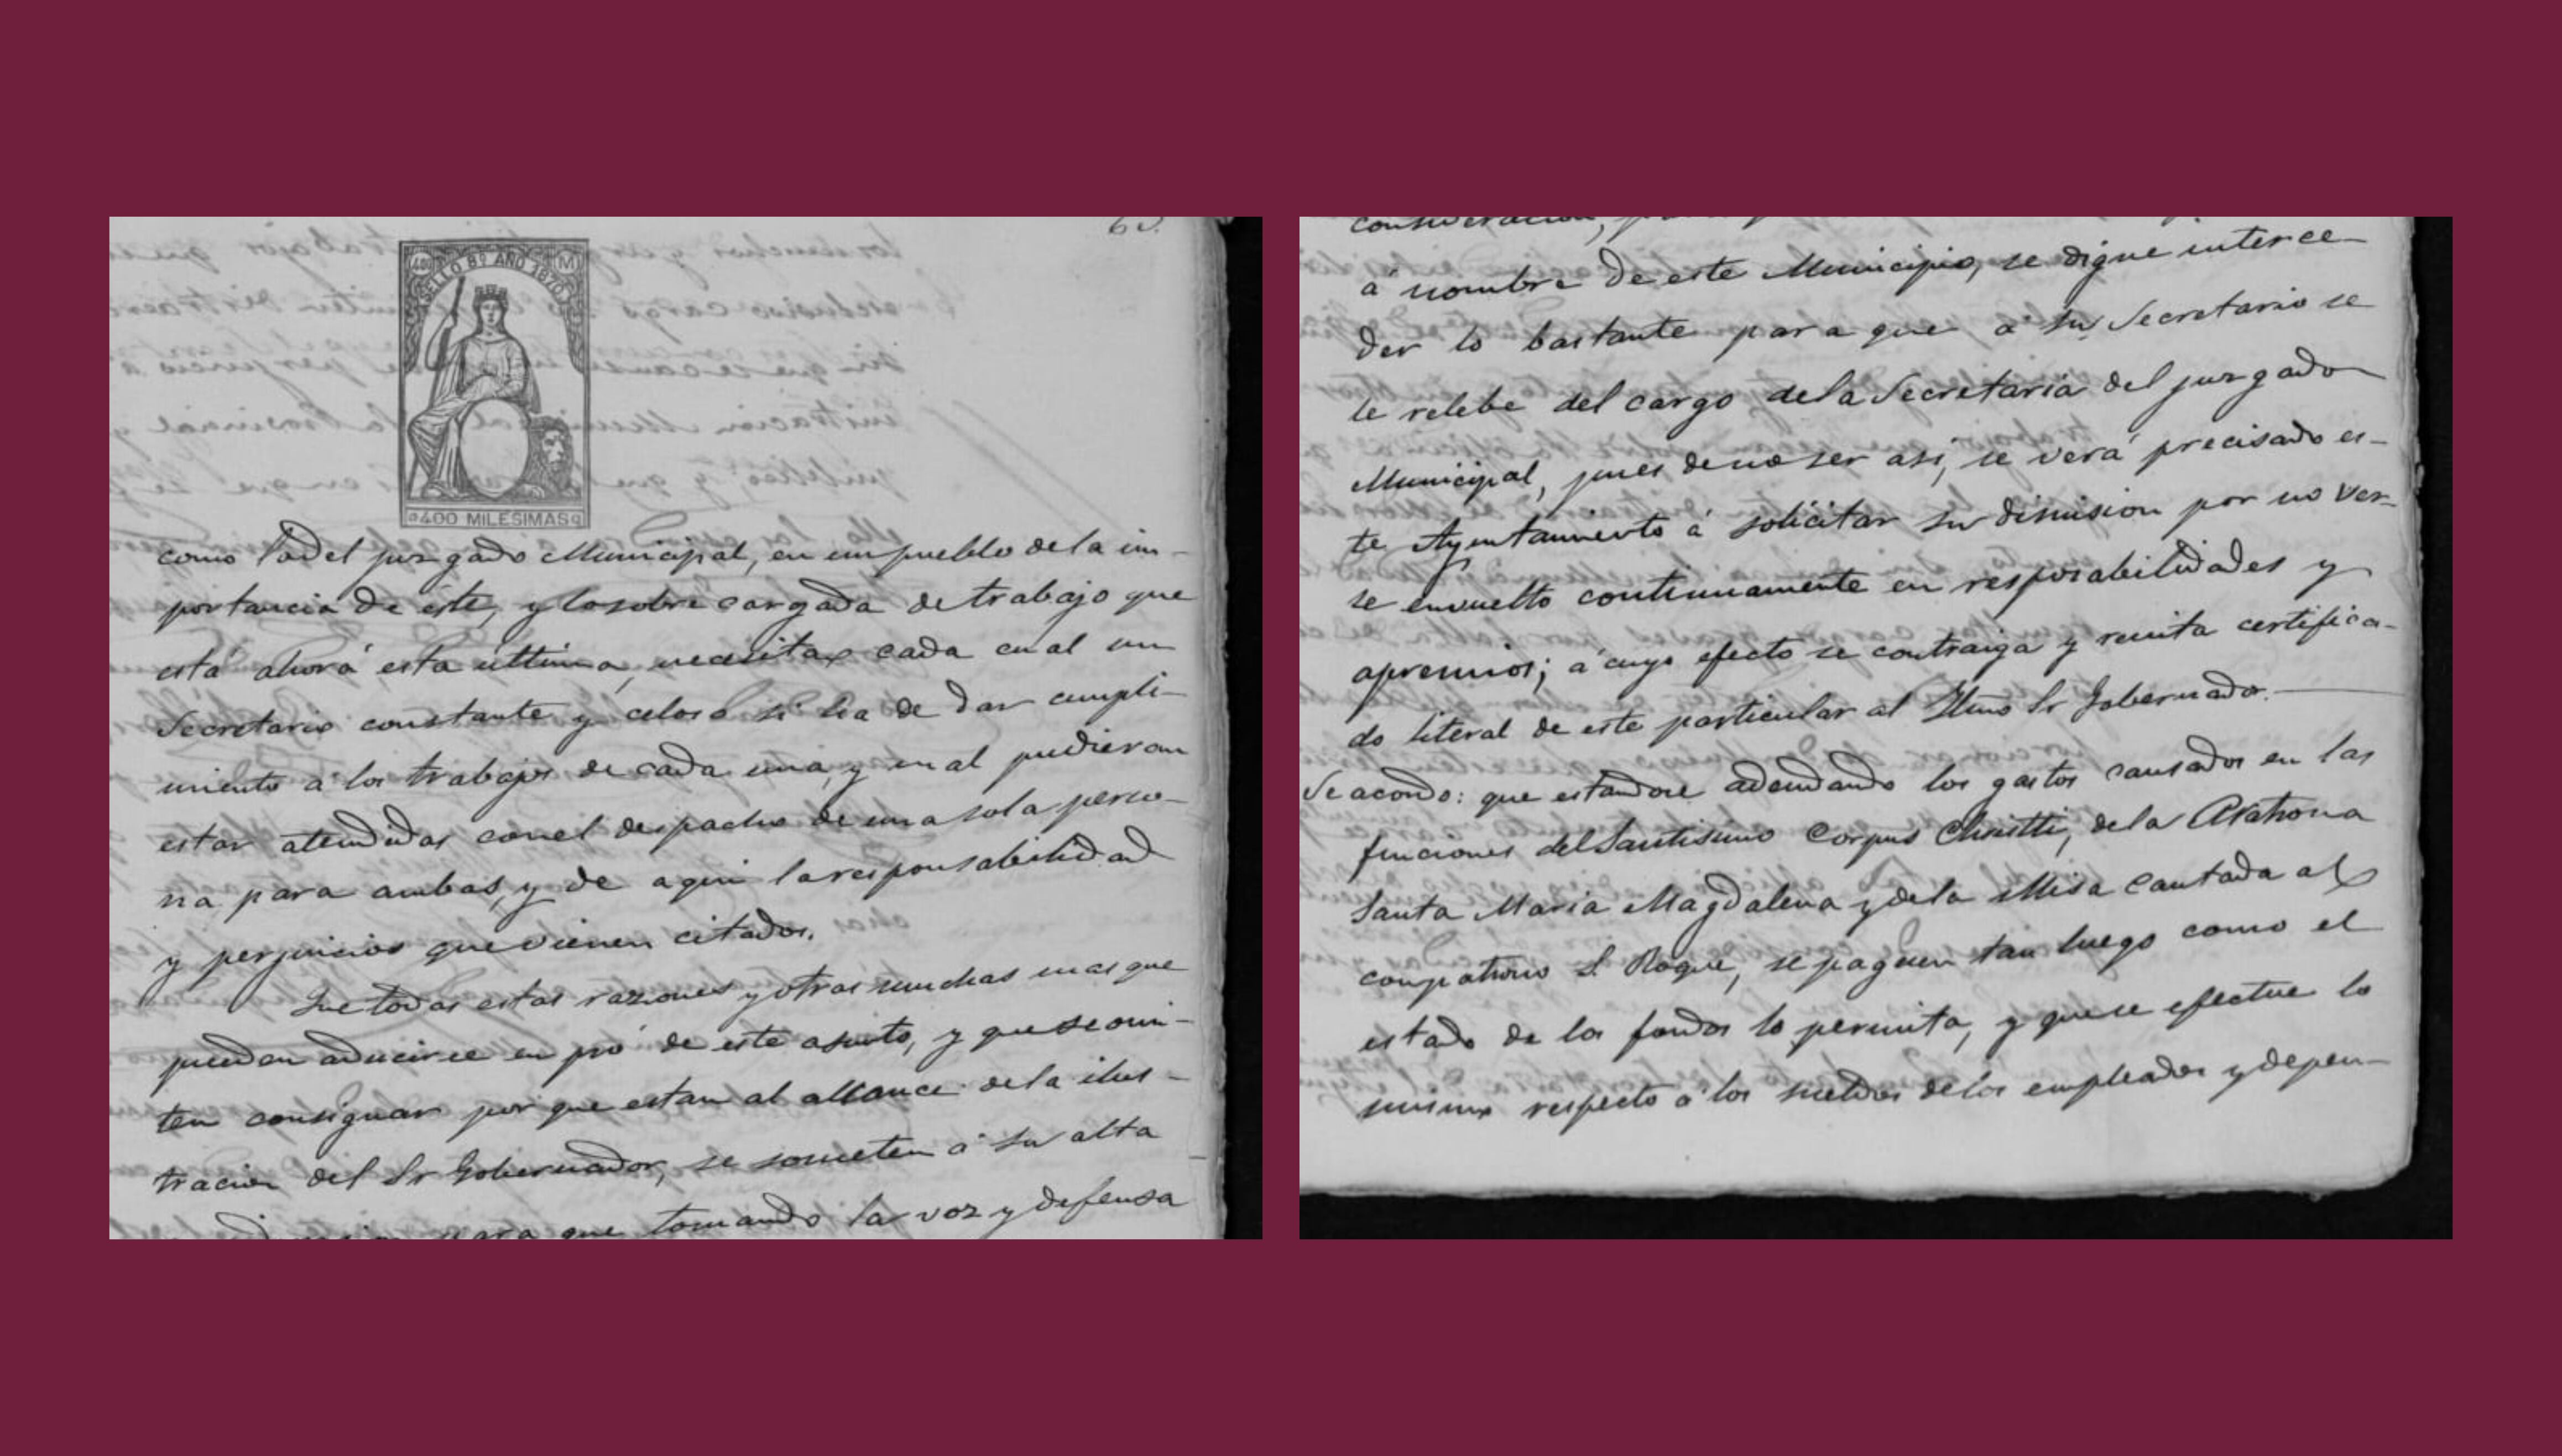 SELLO 8º AÑO 1870
400 M
400 MILESIMAS
como la del juzgado Municipal, en un pueblo de la im-
portancia de éste, y lo sobre cargada de trabajo que
está ahora esta ultima, necesitan cada cual un
Secretario constante y celoso si ha de dar cumpli-
miento á los trabajos de cada una, y mal pudieran
estar atendidas con el despacho de una sola perso-
na para ambas, y de aqui la responsabilidad
y perjuicios que vienen citados.
Que todas estas razones y otras muchas mas que
pueden aducirse en pró de este asunto, y que se omi-
ten consignar por que estan al alcance de la ilus-
tracion del Sr Gobernador, se someten á su alta
para que tomando la voz y defensa
consideracion,
á nombre de este Municipio, se digne interce-
der lo bastante para que á su Secretario se
le relebe del cargo de la Secretaria del juzgado
Municipal, pues de no ser asi, se verá precisado es-
te Ayuntamiento á solicitar su dimision por no ver-
se envuelto continuamente en resposabilidades y
apremios; á cuyo efecto se contraiga y remita certifica-
do literal de este particular al Iltmo Sr Gobernador.
Se acordo: que estandose adeudando los gastos causados en las
funciones del Santisimo Corpus Christti, de la Patrona
Santa Maria Magdalena y de la Misa cantada al
compatrono S. Roque, se paguen tan luego como el
estado de los fondos lo permita, y que se efectue lo
mismo respecto á los sueldos de los empleados y depen-